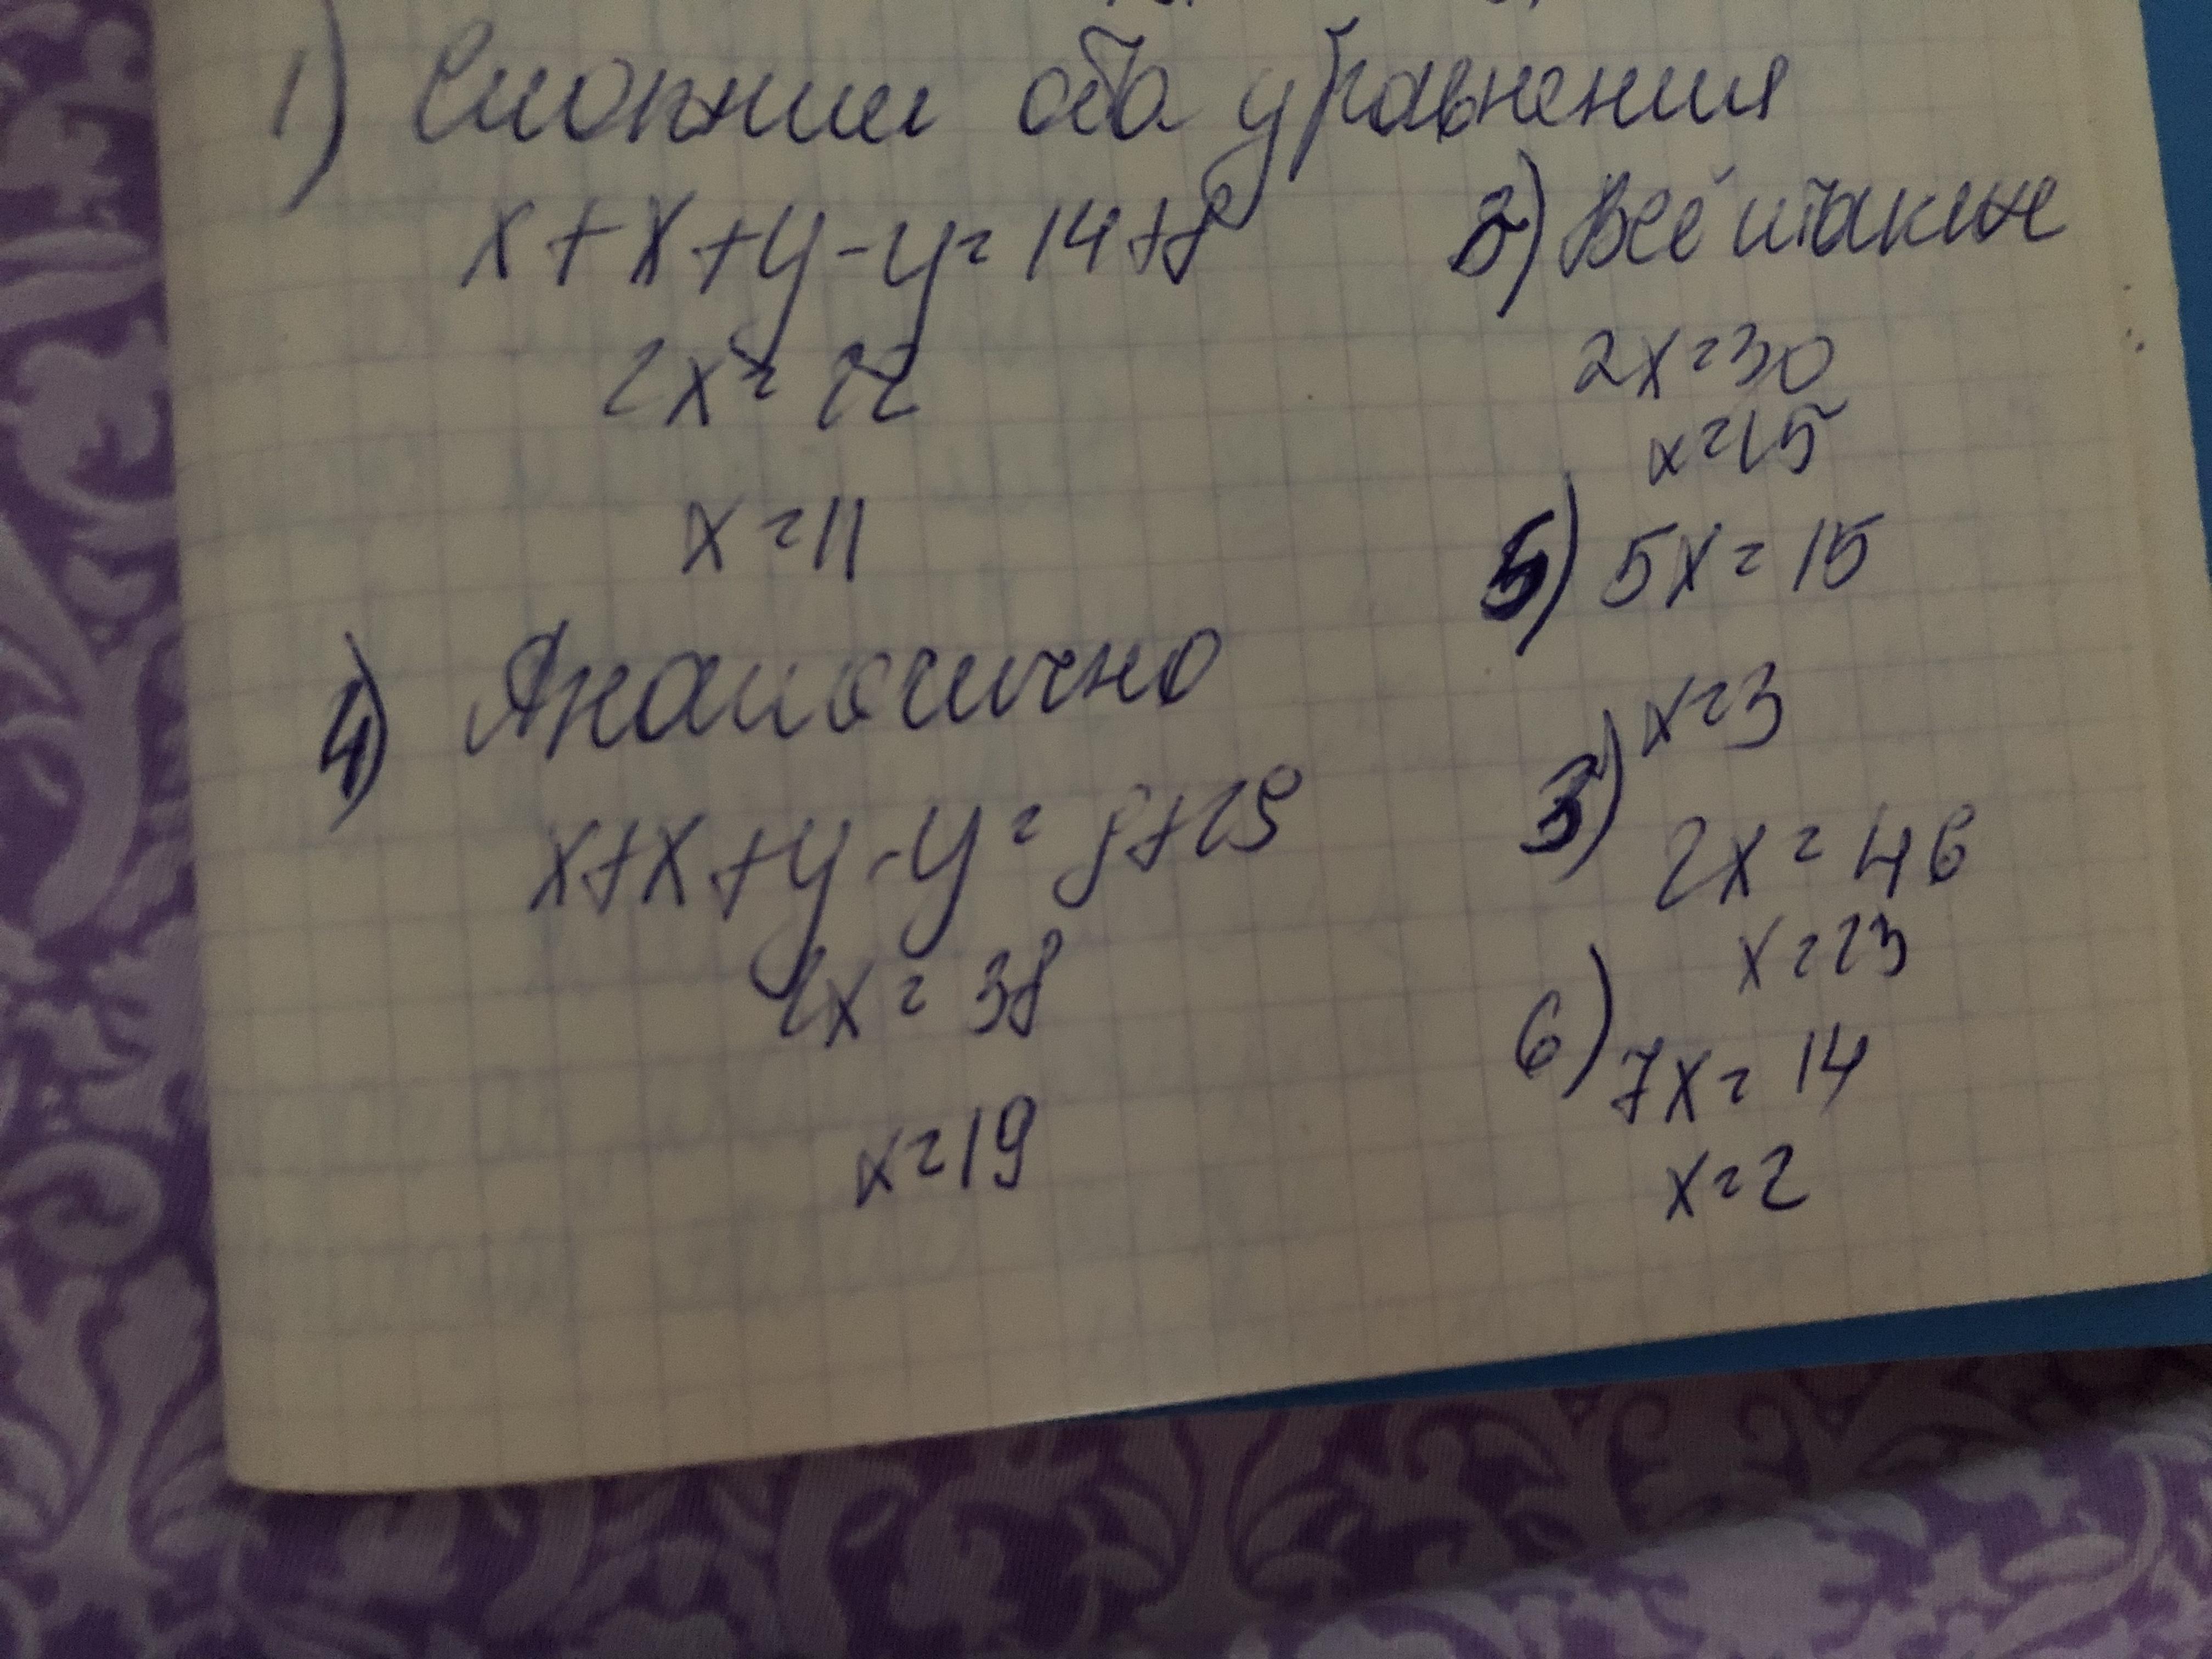 1) Сложим оба уравнения
x+x+y-y=14+8
2x=22
x=11
4) Аналогично
x+x+y-y=9+29
2x=38
x=19
2) Всё также
2x=30
x=15
5) 5x=15
x=3
3)
2x=46
x=23
6) 7x=14
x=2